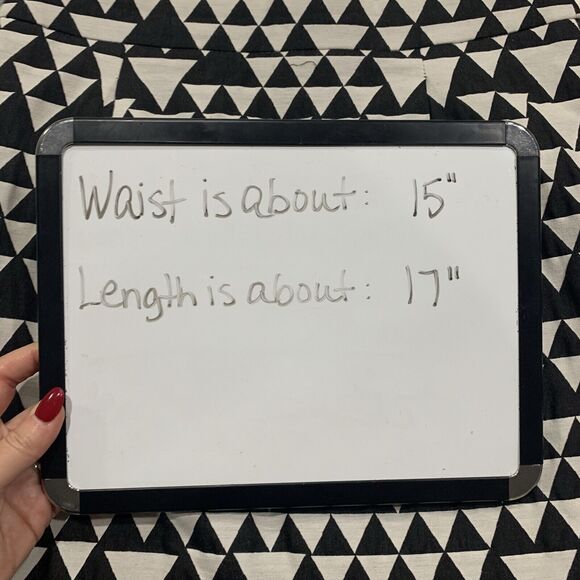 Waist is about: 15"
Length is about: 17"